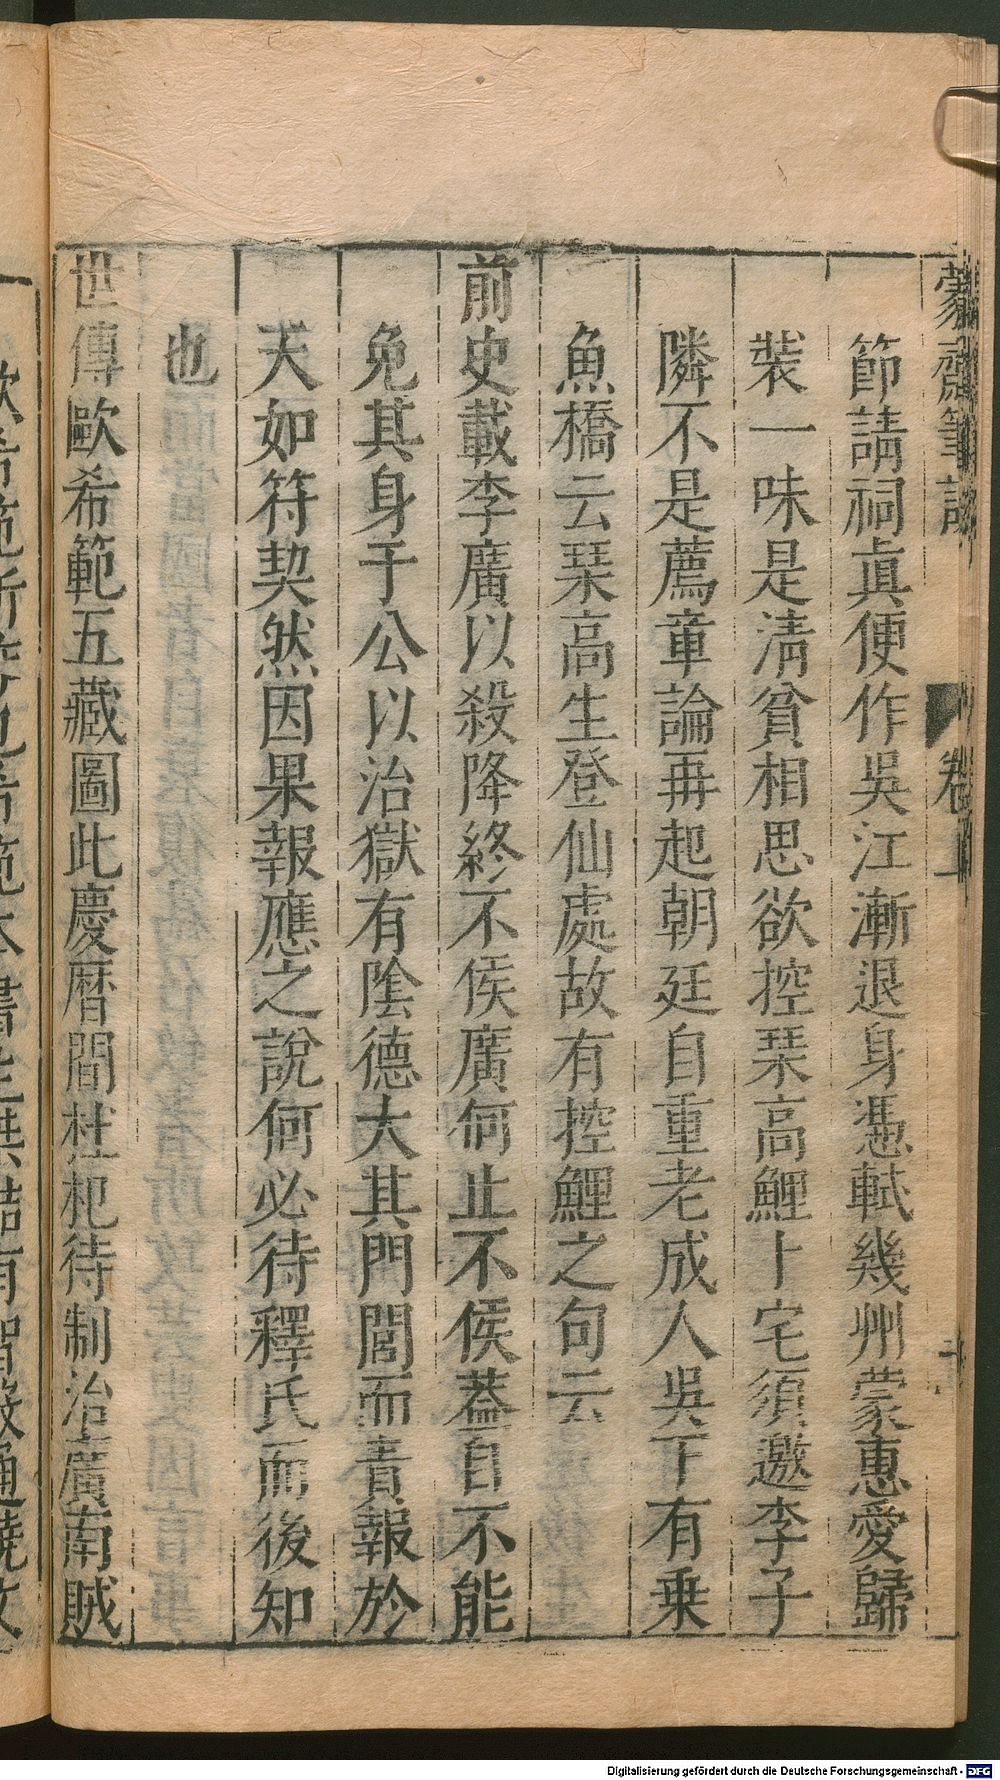 蒙齋筆談 卷上
節請祠眞便作吳江漸退身憑軾幾州蒙惠愛歸
裝一味是淸貧相思欲控琹高鯉卜宅須邀李子
隣不是薦章論再起朝廷自重老成人吳下有乗
魚橋云琹高生登仙處故有控鯉之句云
前史載李廣以殺降終不侯廣何止不侯蓋自不能
免其身于公以治獄有陰德大其門閭而責報於
天如符契然因果報應之說何必待釋氏而後知
也
世傳歐希範五藏圖此慶曆間杜杞待制治廣南賊
Digitalisierung gefördert durch die Deutsche Forschungsgemeinschaft - DFG